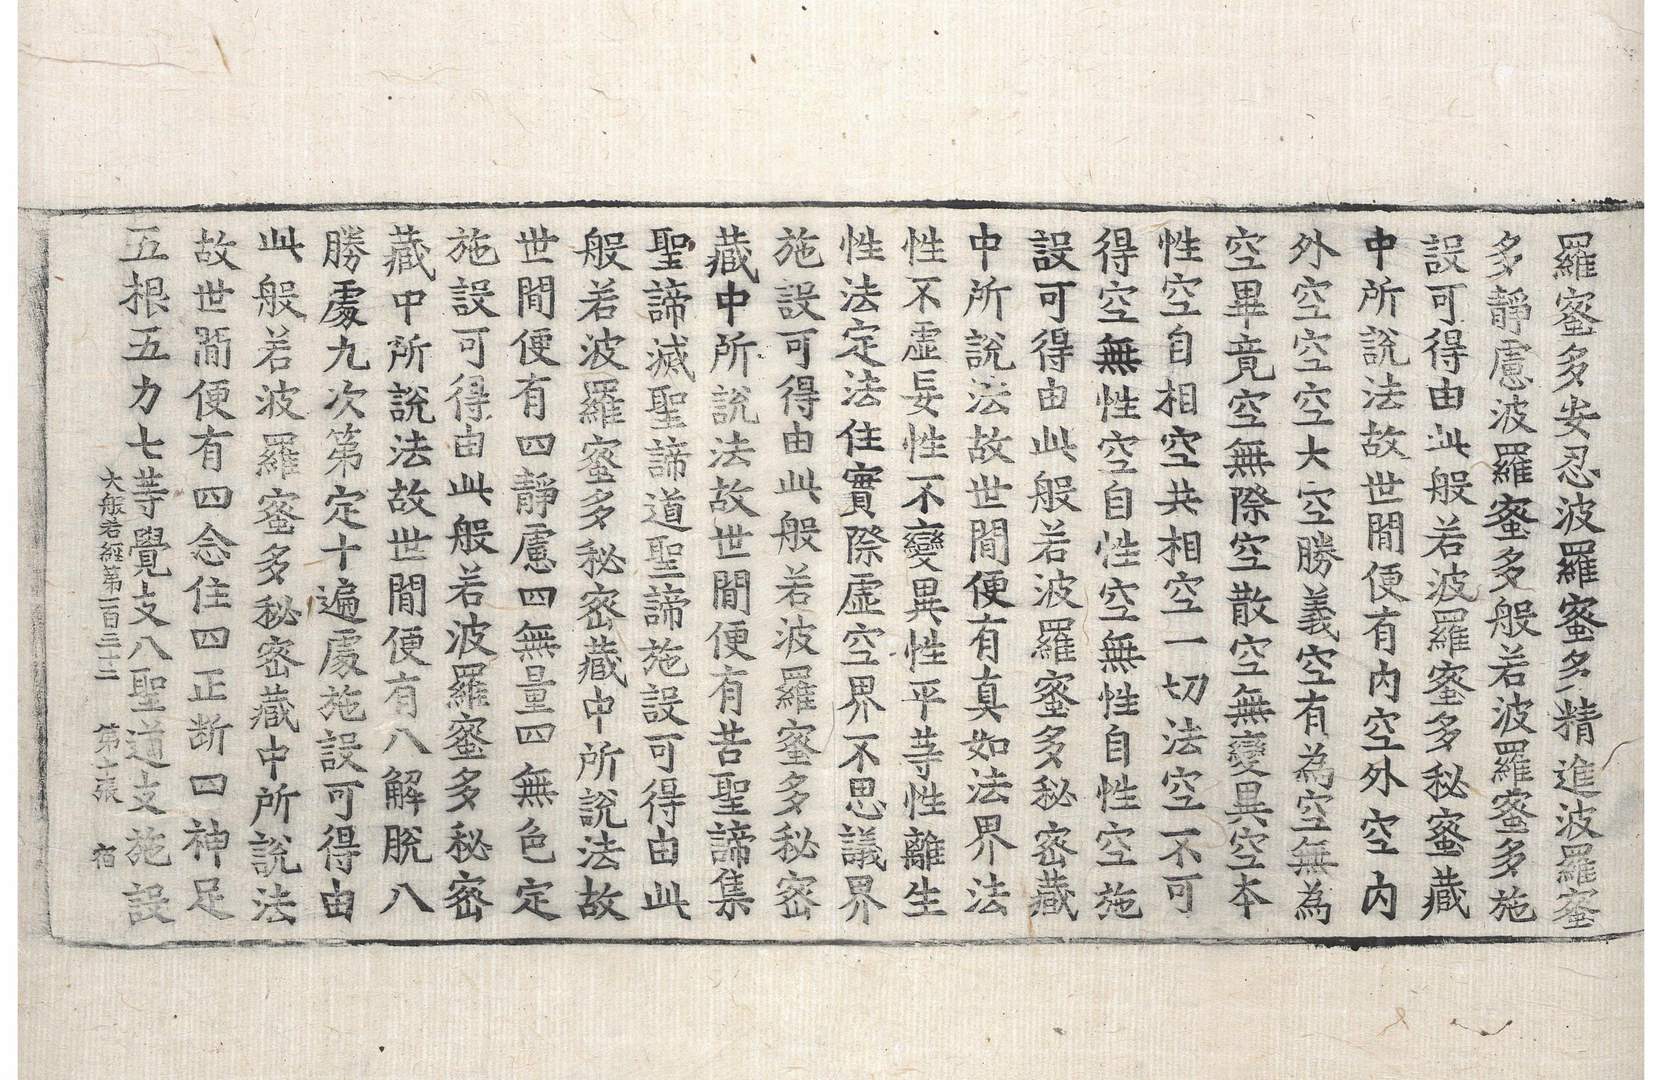 羅蜜多安忍波羅蜜多精進波羅蜜
多靜慮波羅蜜多般若波羅蜜多施
設可得由此般若波羅蜜多秘蜜藏
中所說法故世間便有內空外空內
外空空空大空勝義空有為空無為
空畢竟空無際空散空無變異空本
性空自相空共相空一切法空不可
得空無性空自性空無性自性空施
設可得由此般若波羅蜜多秘密藏
中所說法故世間便有真如法界法
性不虛妄性不變異性平等性離生
性法定法住實際虛空界不思議界
施設可得由此般若波羅蜜多秘密
藏中所說法故世間便有苦聖諦集
聖諦滅聖諦道聖諦施設可得由此
般若波羅蜜多秘密藏中所說法故
世間便有四靜慮四無量四無色定
施設可得由此般若波羅蜜多秘密
藏中所說法故世間便有八解脫八
勝處九次第定十遍處施設可得由
此般若波羅蜜多秘密藏中所說法
故世間便有四念住四正断四神足
五根五力七等覺支八聖道支施設
大般若經第一百二三 第十張 宿